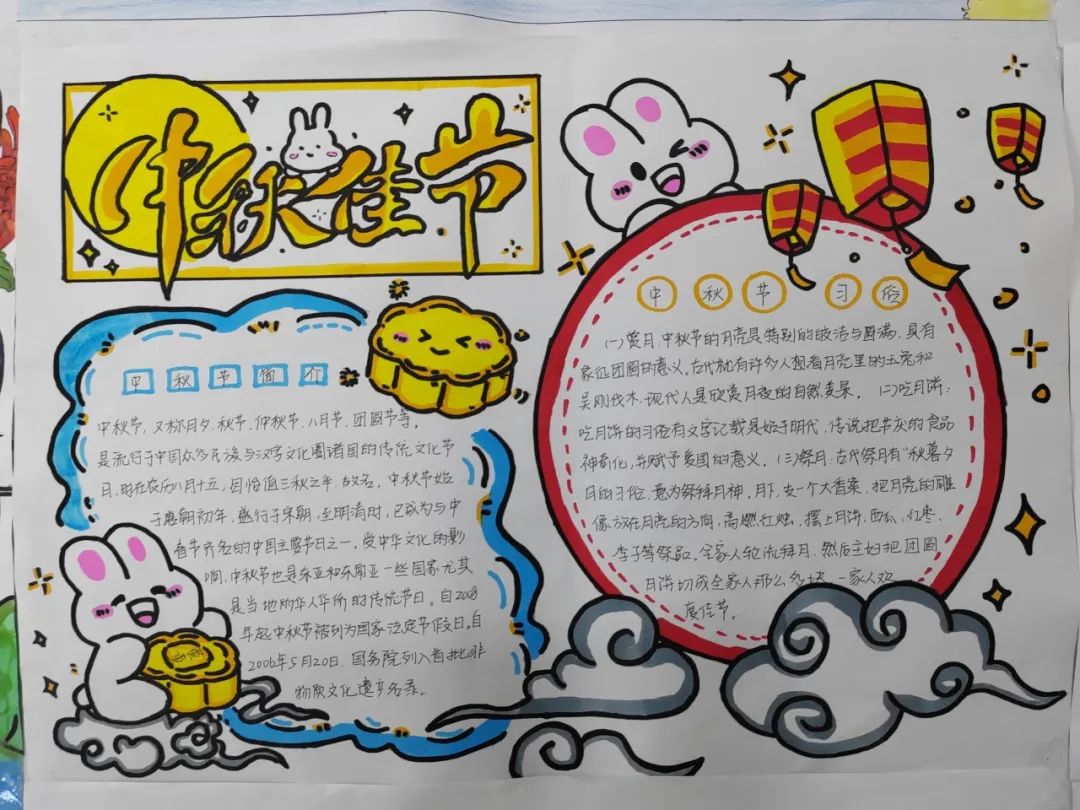 中秋佳节
中秋节简介
中秋节，又称月夕、秋节、仲秋节、八月节、团圆节等，
是流行于中国众多民族与汉字文化圈诸国的传统文化节
日，时在农历八月十五，因恰值三秋之半，故名。中秋节始
于唐朝初年，盛行于宋朝，至明清时，已成为与中
春节齐名的中国主要节日之一。受中华文化的影
响，中秋节也是东亚和东南亚一些国家尤其
是当地的华人华侨的传统节日。自2008
年起中秋节被列为国家法定节假日。自
2006年5月20日，国务院列入首批非
物质文化遗产名录。
中秋节习俗
(一)赏月：中秋节的月亮是特别的皎洁与圆满，具有
象征团圆的意义，古代就有许多人想看月亮里的玉兔和
吴刚伐木，现代人是欣赏月夜的自然美景。(二)吃月饼：
吃月饼的习俗有文字记载是始于明代，传说把节庆的食品
神奇化，并赋予爱国的意义。(三)祭月：古代祭月有“秋暮夕
月的习俗，意为祭拜月神。月下，支一个大香案，把月亮的雕
像放在月亮的方向，高燃红烛，摆上月饼、西瓜、红枣、
李子等祭品。全家人轮流拜月，然后主妇把团圆
月饼切成全家人那么多块，一家人欢
度佳节。